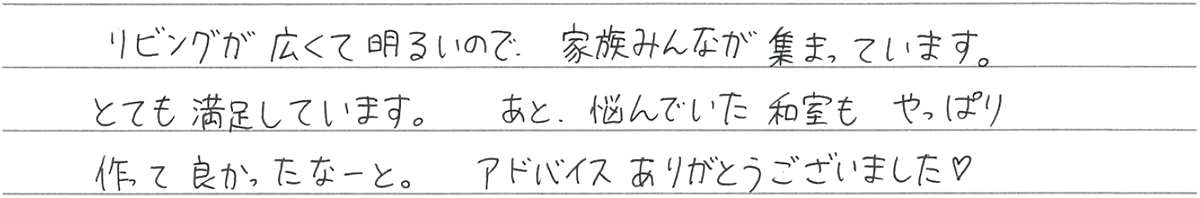 リビングが広くて明るいので、家族みんなが集まっています。
とても満足しています。 あと、悩んでいた和室も やっぱり
作って良かったなーと。 アドバイスありがとうございました♡